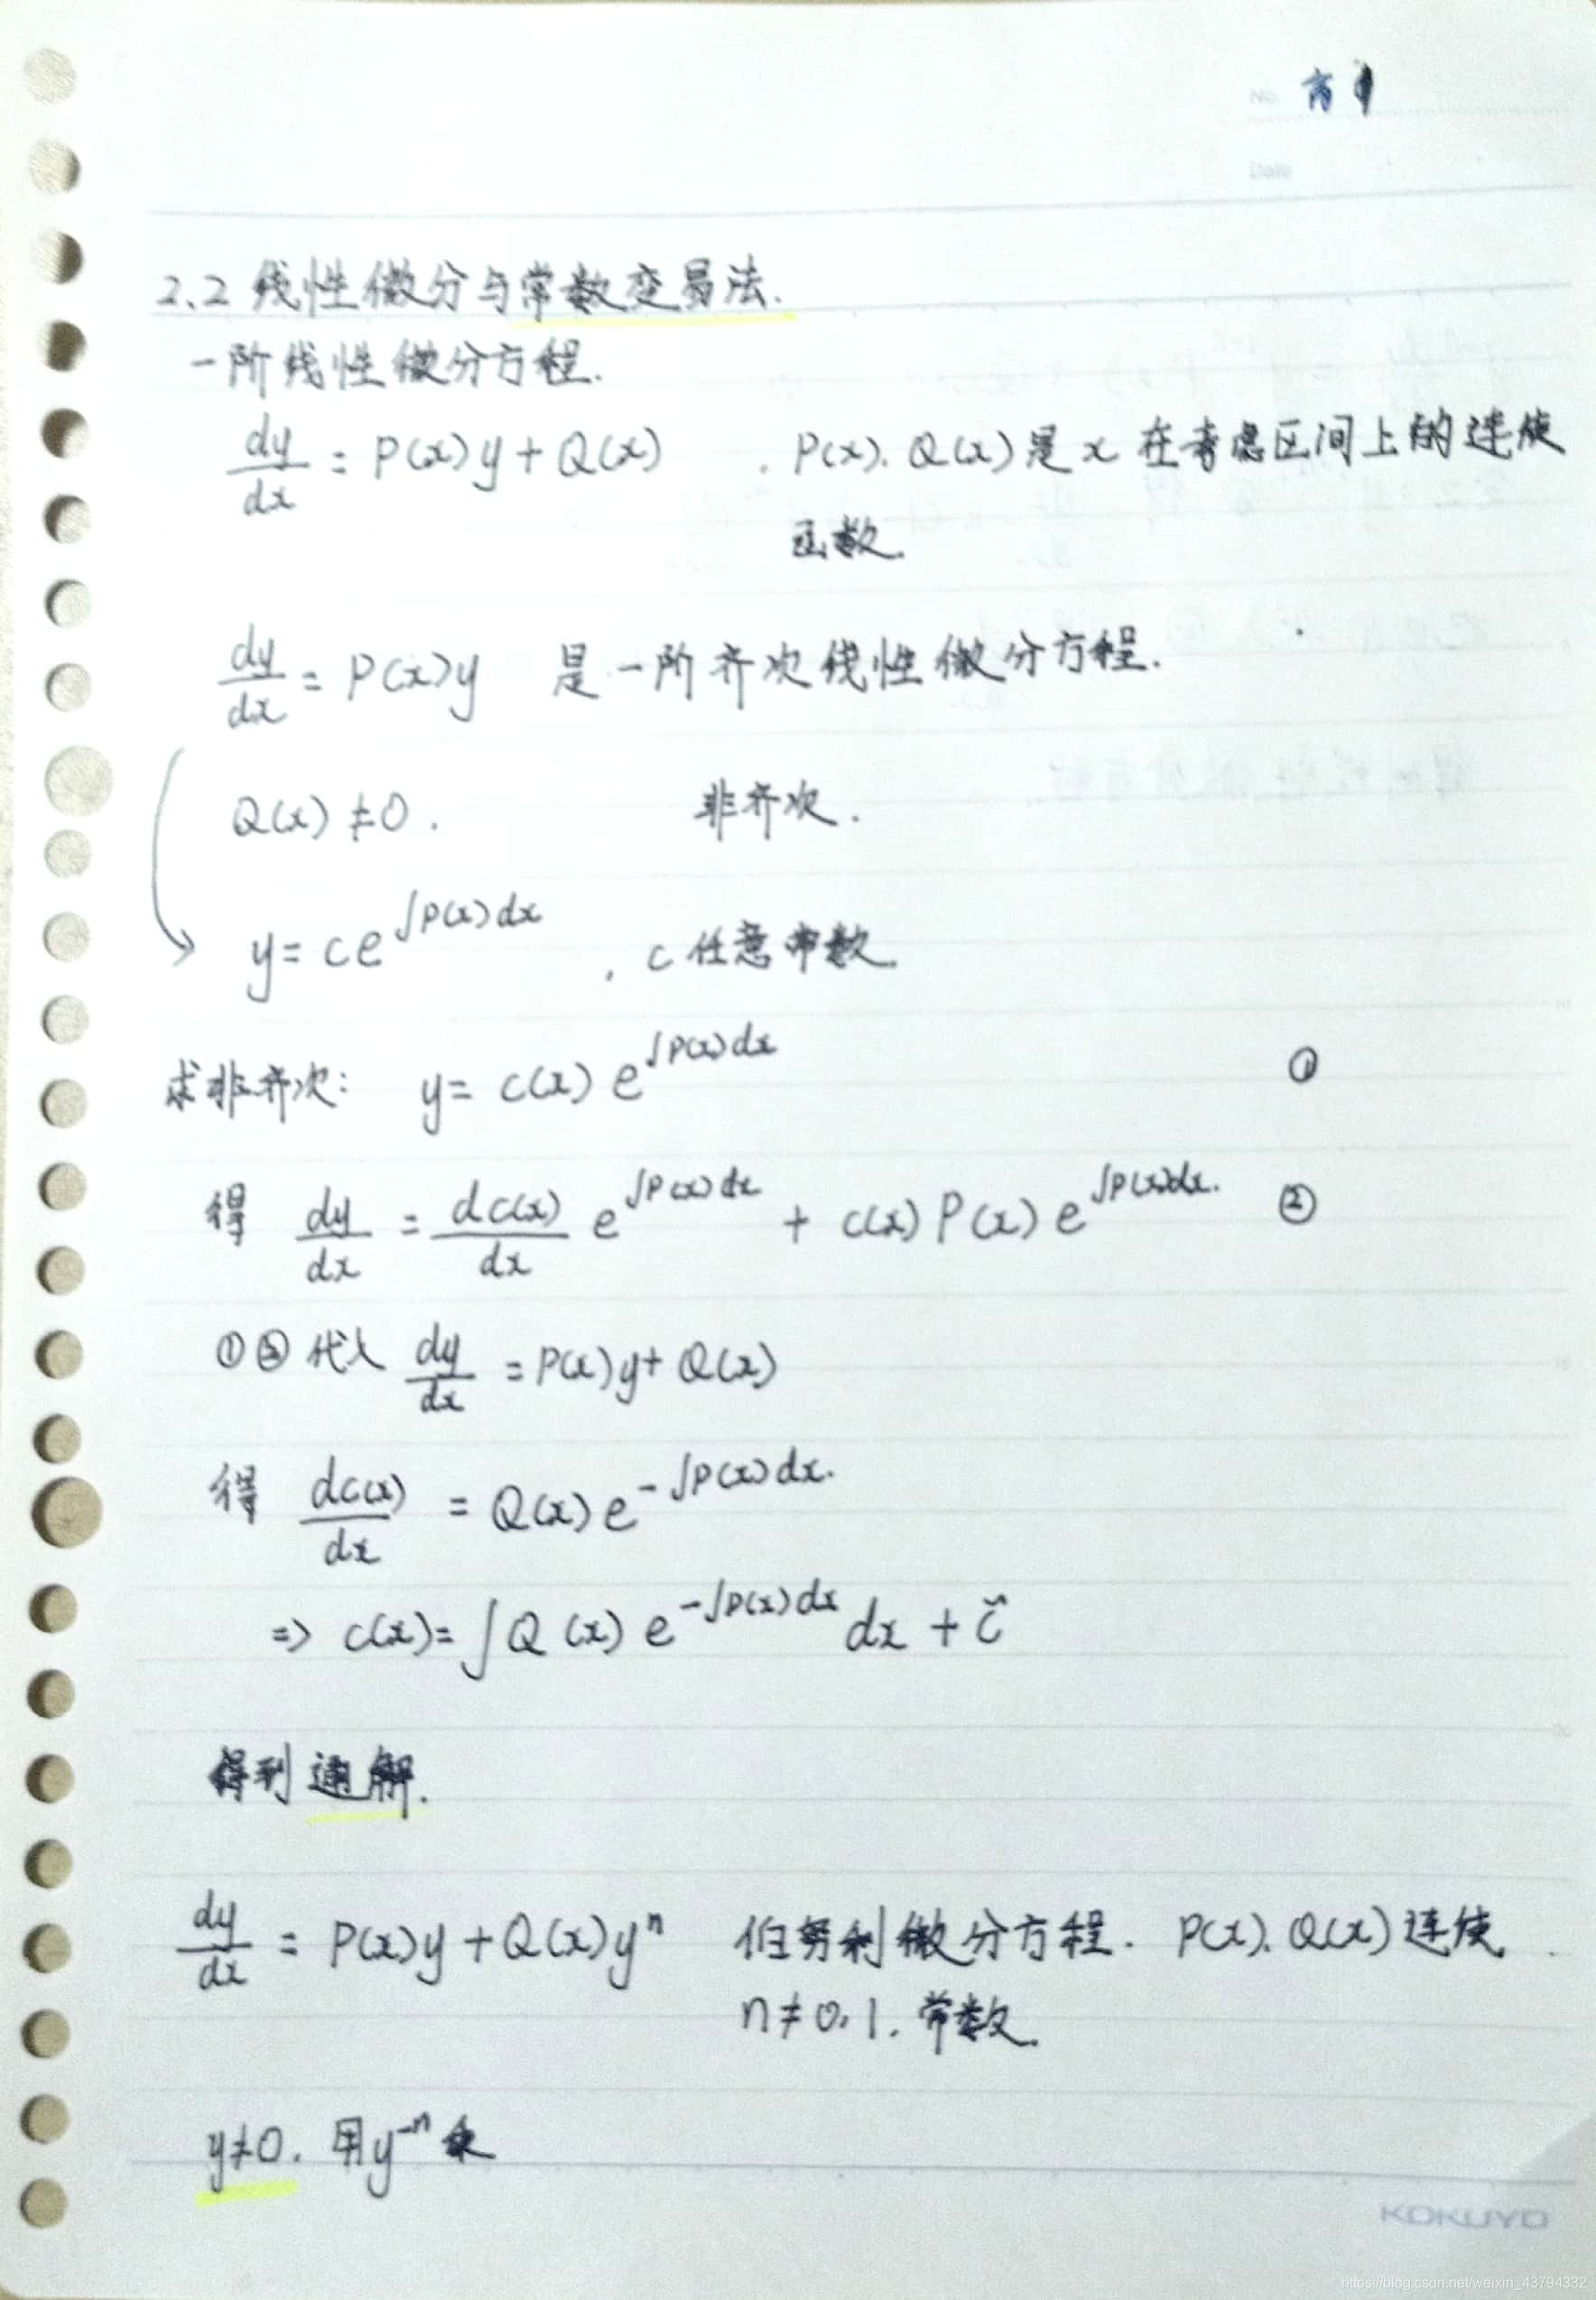 No.
Date
2.2 线性微分与常数变易法.
一阶线性微分方程.
dy/dx = P(x)y + Q(x) . P(x). Q(x)是 x 在考虑区间上的连续
函数.
dy/dx = P(x)y 是一阶齐次线性微分方程.
Q(x) ≠ 0. 非齐次.
y = ce^{∫P(x)dx} , c 任意常数.
求非齐次: y = c(x) e^{∫P(x)dx} ①
得 dy/dx = dc(x)/dx e^{∫P(x)dx} + c(x) P(x) e^{∫P(x)dx}. ②
①② 代入 dy/dx = P(x)y + Q(x)
得 dc(x)/dx = Q(x) e^{-∫P(x)dx}.
=> c(x) = ∫Q(x) e^{-∫P(x)dx} dx + c̃
得到通解.
dy/dx = P(x)y + Q(x)y^n 伯努利微分方程. P(x). Q(x)连续.
n≠0.1. 常数.
y≠0. 用y^{-n} 乘
KOKUYO
https://blog.csdn.net/weixin_43794332